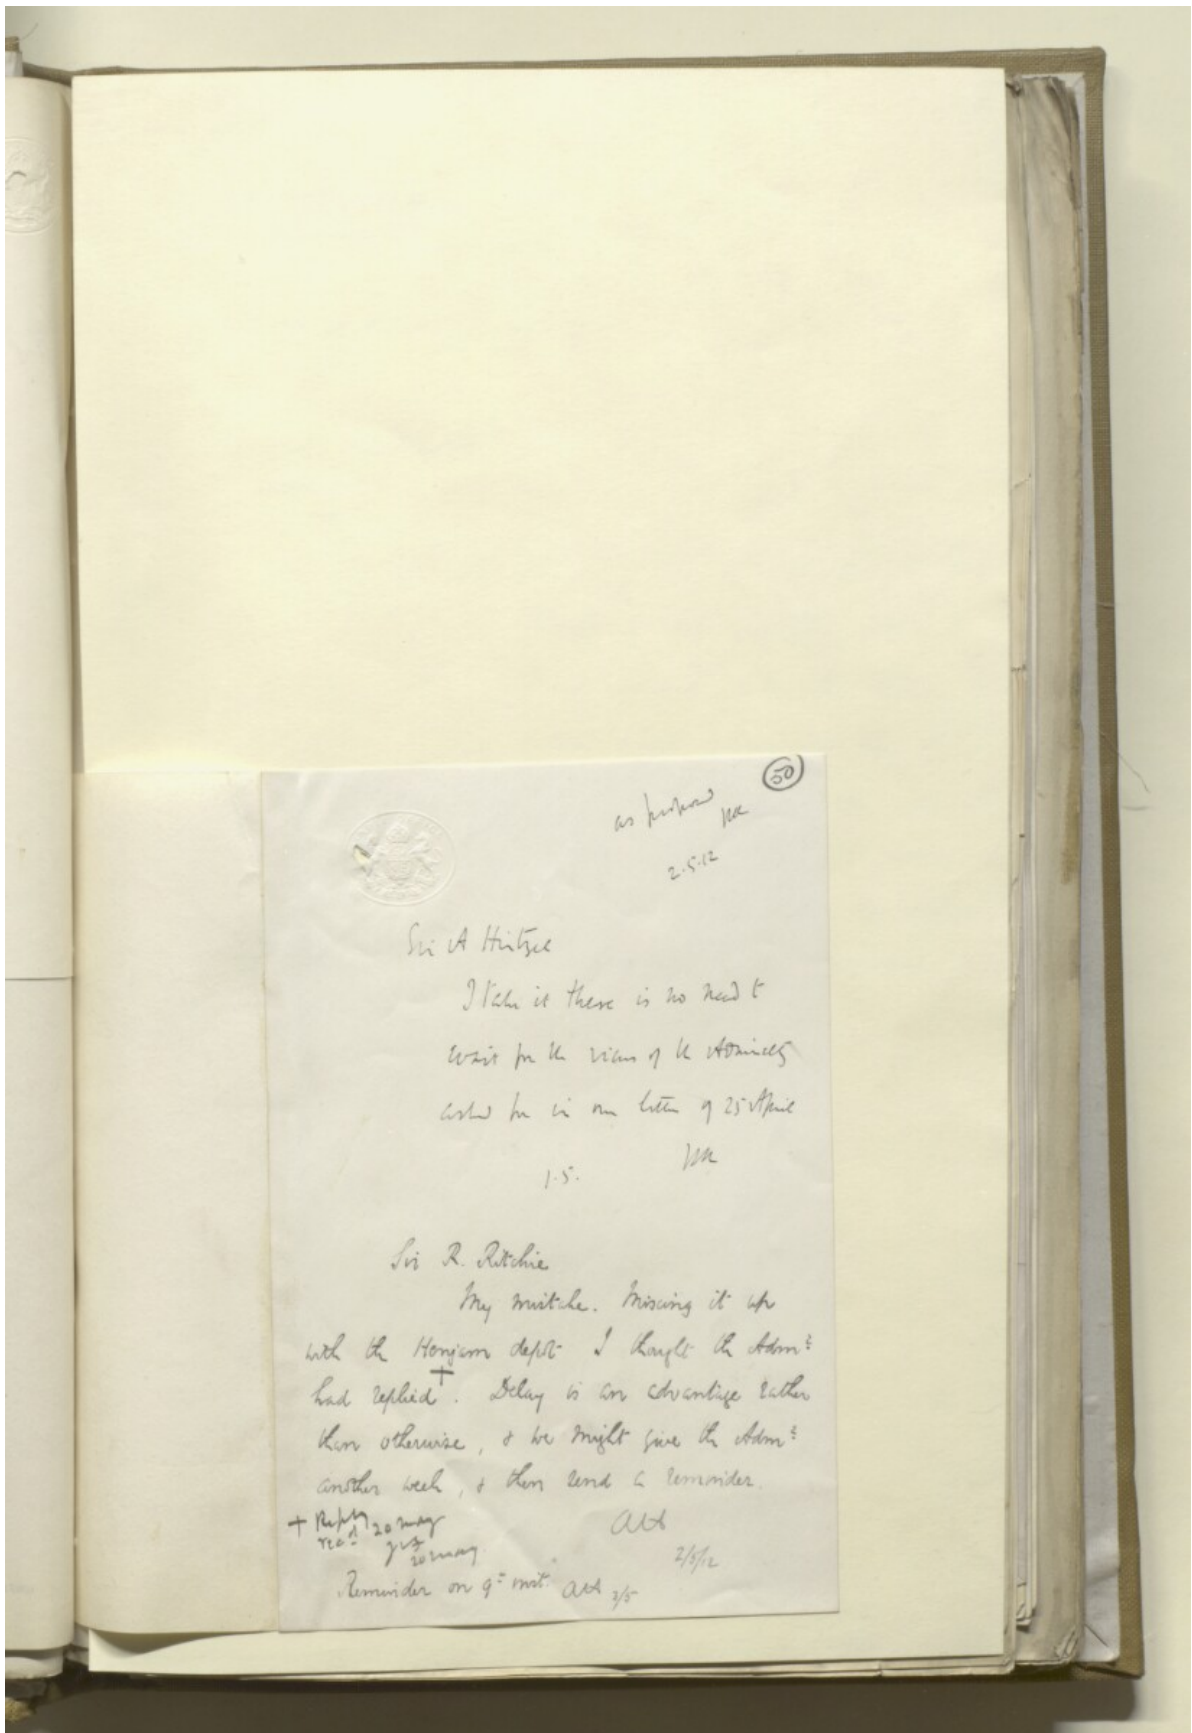 50
as proposed
2.5.12
Sir A Hirtzel
I take it there is no need to
wait for the views of the Admiralty
asked for in our letter of 25 April
1.5.
Sir R. Ritchie
My mistake. Mixing it up
with the Henjam depôt I thought the Adm.ty
had replied +. Delay is an advantage rather
than otherwise, & we might give the Adm.ty
another week, & then send a reminder.
AH
2/5/12
+ Reply
rec.d 20 May
20 May
Reminder on 9th inst. AH 2/5